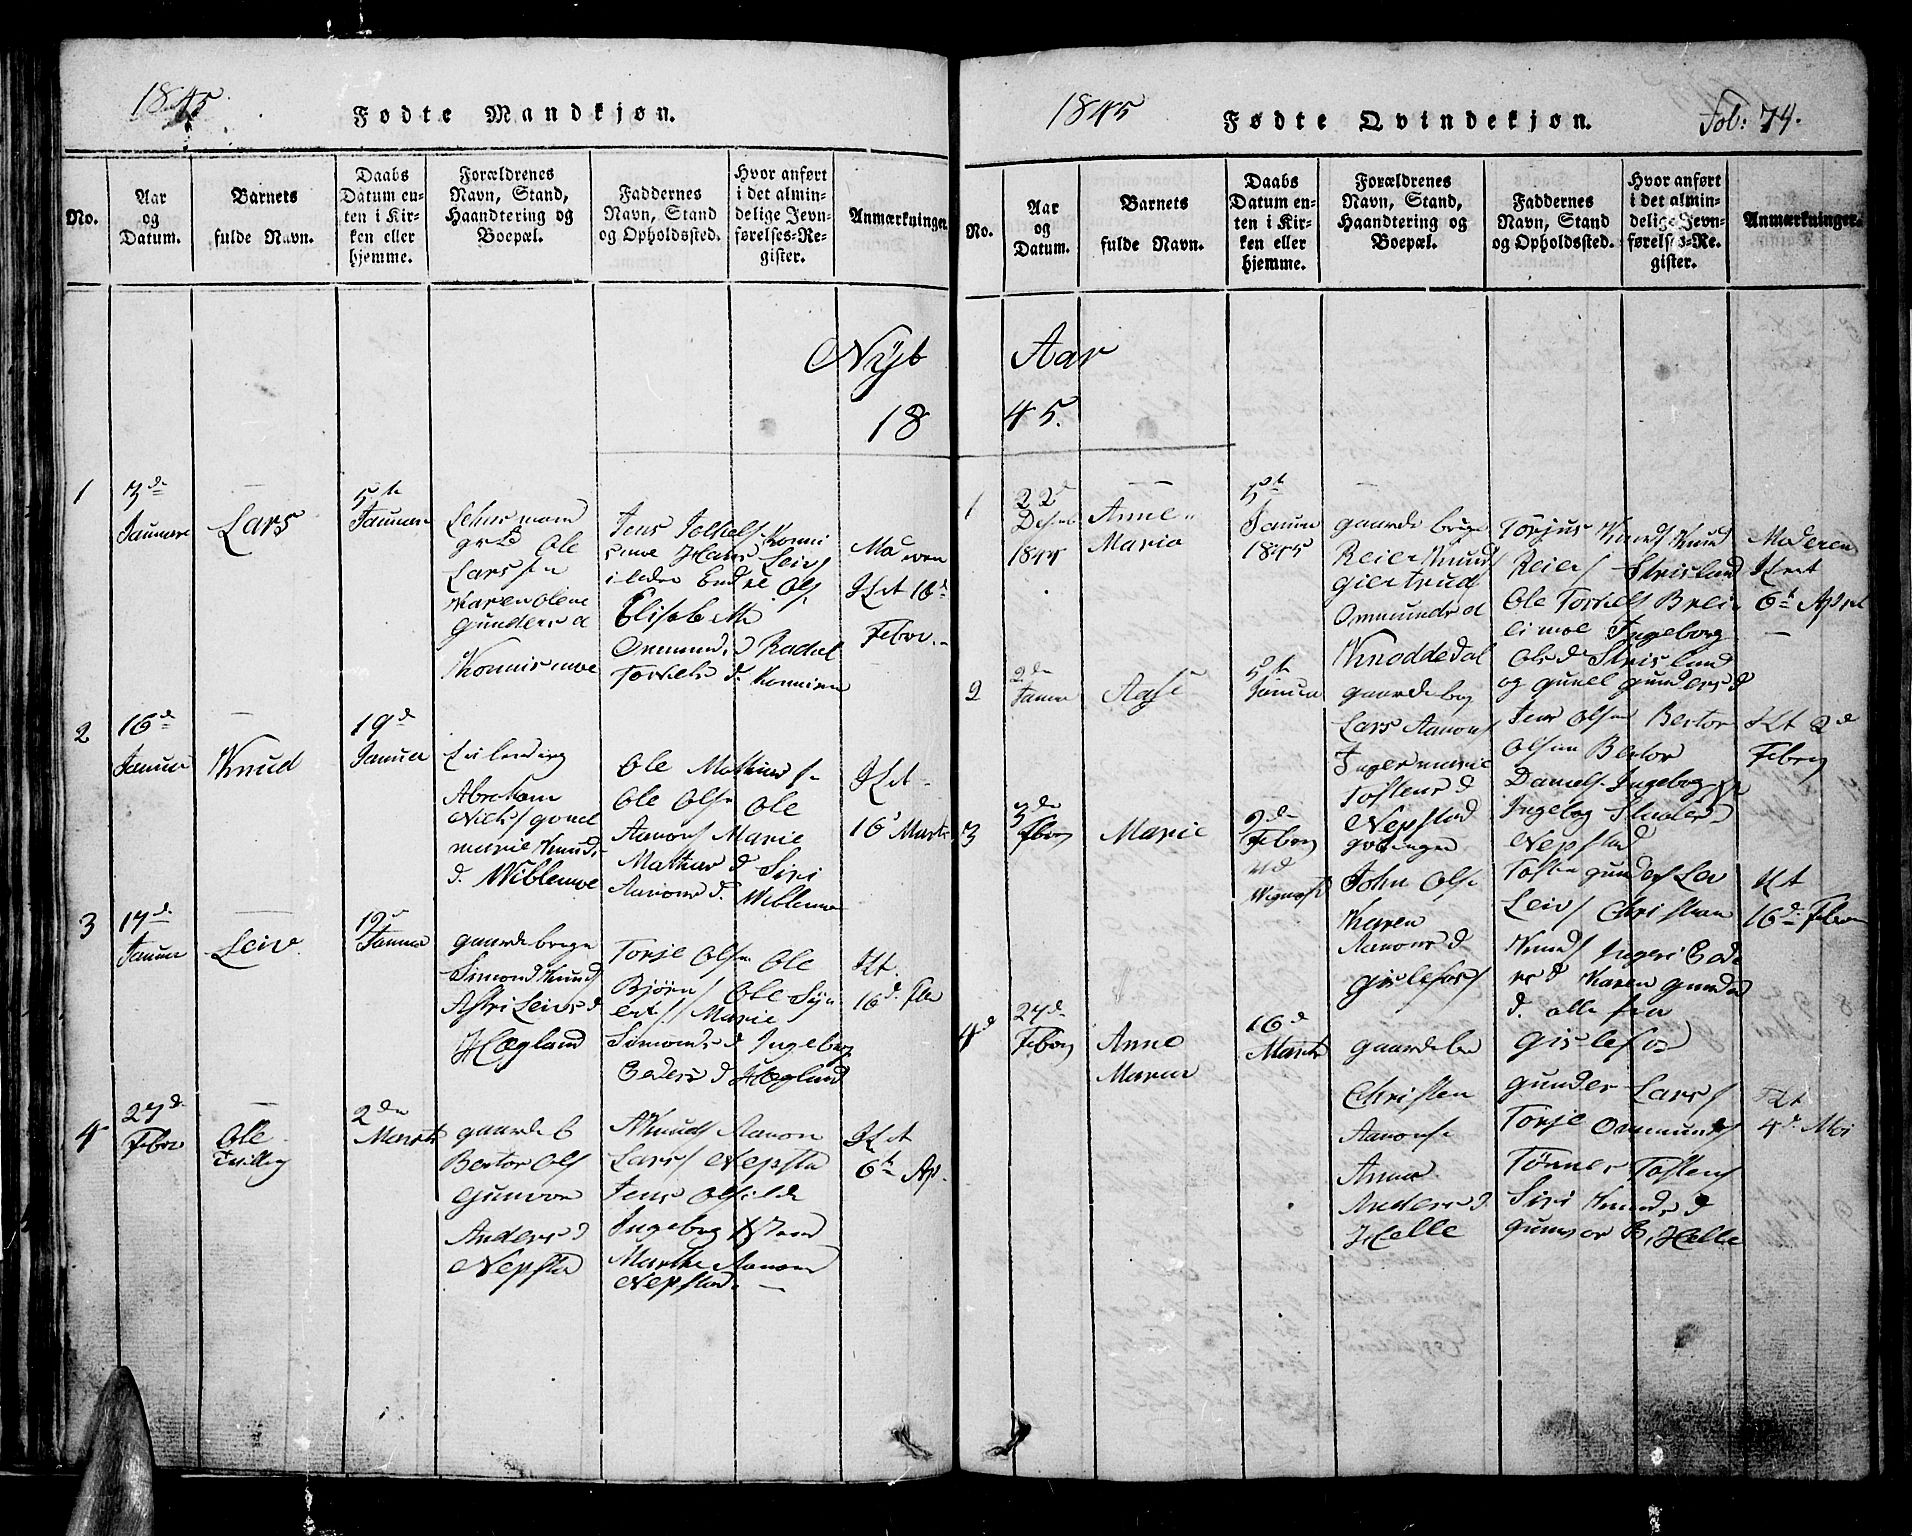 1845.
Fødte Mandkjøn.
No.
Aar og Datum.
Barnets fulde Navn.
Daabs Datum enten i Kirken eller hjemme.
Forældrenes Navn, Stand, Haandtering og Boepæl.
Faddernes Navn, Stand og Opholdssted.
Hvor anført i det almindelige Jevnførelses-Register.
Anmærkninger.
Nyt
18
1
3de
Januar
Lars
5te
Januar
Lehnsmand
Ole
Larssen
Karen Olene
Gunders d
Konnismoe
Jens
Hans Leivs
Endre Ols
Elisabeth
Ommunds d Rachel
Torkels d.
Kt 16
Febr.
2
16d
Januar
Knud
19d
Januar
Abraham
Niels Gunel
marie Knuds
d. Wiblemoe
Ole Mathias
Ole Olsn Ole
Aanons Marie
Mathias d Siri
Aanons d. Wiblemo
Kt
16 Marts
3
17d.
Januar
Leiv.
19
Januar
gaardebruge
Simond Knuds
Astri Leivs d
Hægland
Torje Olsn Ole
Bjørn Ole
Marie
Simonds d Ingeborg
Peders d Hægland
Kt.
16d. Feb
4
27d.
Febr
Ole
Tvilling
2den
Marts
gaardeb
Bertor Ols
Gunvor
Anders d
Nepsta
Knuds Aanon
Lars Nepsta
Jens
Ingebor
Marthe Aanons
Nepstad.
Kt
6t Ap.
1845
Fødte Qvindekjøn.
Fol: 74.
No.
Aar og Datum.
Barnets fulde Navn.
Daabs Datum enten i Kirken eller hjemme.
Forældrenes Navn, Stand, Haandtering og Boepæl.
Faddernes Navn, Stand og Opholdssted.
Hvor anført i det almindelige Jevnførelses-Register.
Anmærkninger.
Aar
45.
1
22d
1844
Anne
Maria
5t
Janua
1845
gaardebruge
Reier Knuds
Giertrud
Ommunds d
Knoddedal
Torjus Knuds Knud
Reiers Strisland
Ole Torkels Brei
limoe Ingeborg
Ols d Strisland
og Gunel Gunders d
Moderen
Kt
6t Apr
2
2de
Janua
Aase
5te
Janua
gaardebrg
Lars Aanons
Ingermarie
Tostens d
Nepstad
Jens Olsn Bertor
Olsen Bertor
Daniels Ingebog
Ingebog
Nepstad
Kt 2d
Febrg
3
3de
Febrg
Marie
9de
Febrg
John Ols
Karen
Aanons d
Gislefos
Gunders Lev
Leivs Christian
Knuds Ingeri Pede
rs d Karen Gunders
d. alle fra
Gislefos
Kt
16d. Febr
4d
27d.
Febrg
Anne
Maria
16d
Marts
gaardebr
Christen
Aanons
Anna
Anders d.
Helle
Gunder Lars
Torje Ommunds
Tønnes Tostens
Siri Knuds d
Gunvor B. Helle
Kt
4d. Mai